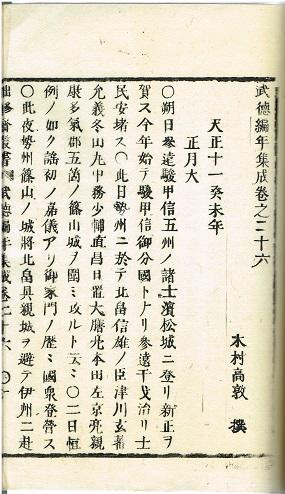 武德編年集成卷之二十六
木村高敦 撰
天正十一癸未年
正月大
〇朔日參遠駿甲信五州ノ諸士濱松城ニ登リ新正ヲ
賀ス今年始テ駿甲信御分國トナリ參遠干戈治リ士
民安堵ス〇此日勢州ニ於テ北畠信雄ノ臣津川玄蕃
允義冬田丸中務少輔直昌日置大膳亮本田左京亮親
康多氣郡五箇ノ篠山城ヲ圍ミ攻ルト云々〇二日恒
例ノ如ク謠初ノ嘉儀アリ御家門ノ歷々國衆登營ス
〇此夜勢州篠山ノ城將北畠具親城ヲ避テ伊州ニ赴
武德編年集成卷二十六